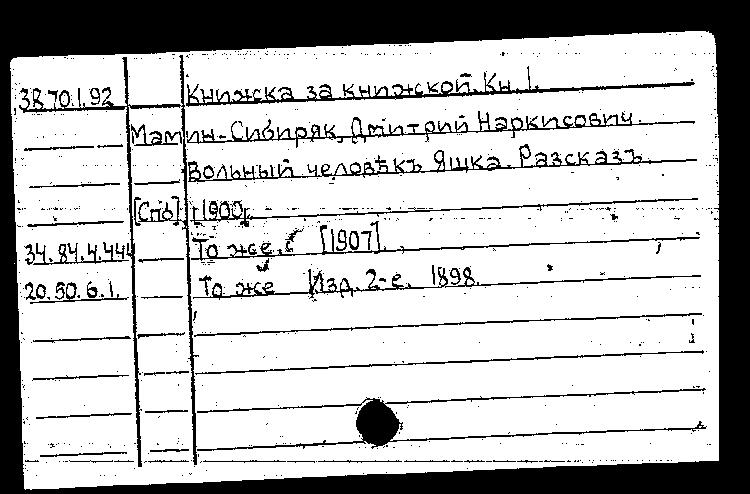 38.70.1.92 Книжка за книжкой. Кн. 1.
Мамин-Сибиряк, Дмитрий Наркисович.
Вольный человѣкъ Яшка. Разсказъ.
[Спб], 1900г.
34.84.4.444 То же. [1907].
20.50.6.1. То же Изд. 2-е. 1898.